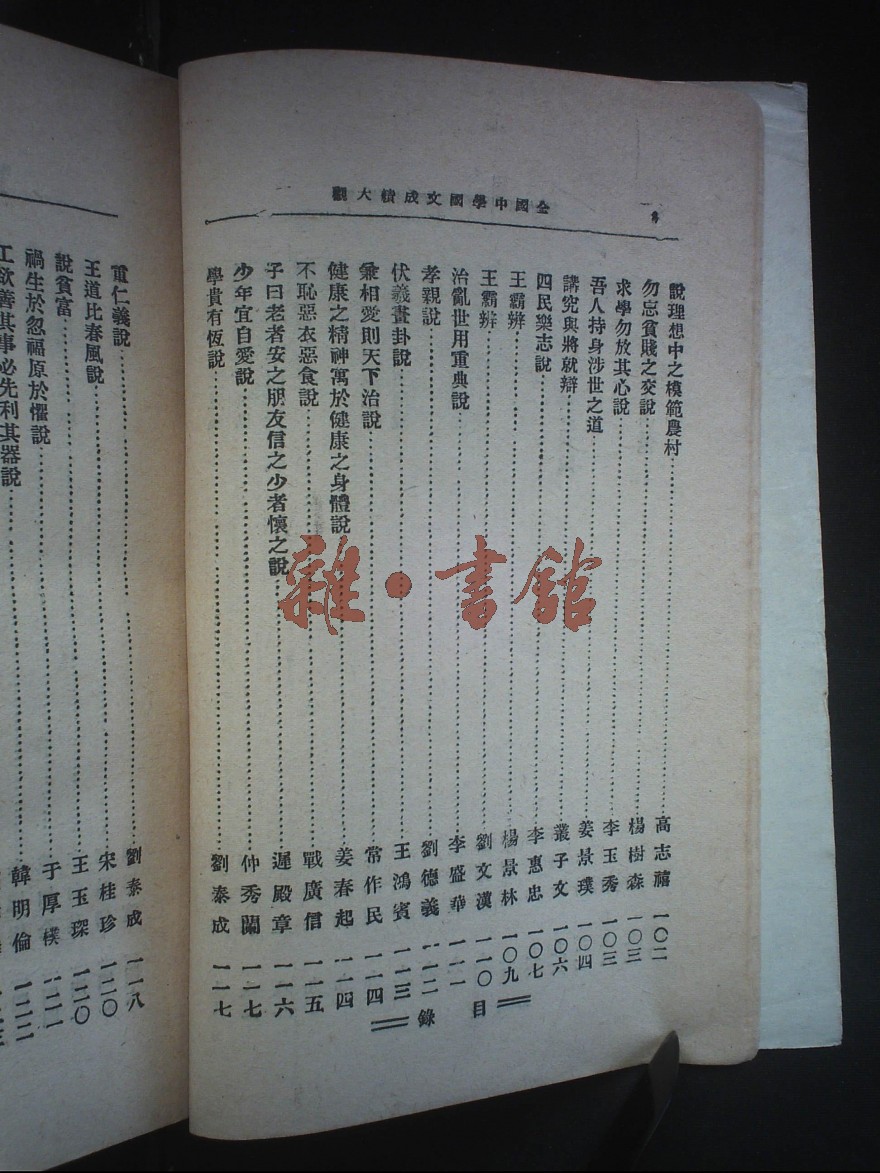 全國中學國文成績大觀
說理想中之模範農村……高志禧 一〇二
勿忘貧賤之交說……楊樹森 一〇三
求學勿放其心說……李玉秀 一〇三
吾人持身涉世之道……姜景璞 一〇四
講究與將就辯……叢子文 一〇六
四民樂志說……李惠忠 一〇七
王霸辨……楊景林 一〇九
王霸辨……劉文漢 一一〇
治亂世用重典說……李盛華 一一一
孝親說……劉德義 一一二
伏羲畫卦說……王鴻賓 一一三
兼相愛則天下治說……常作民 一一四
健康之精神寓於健康之身體說……姜春起 一一四
不恥惡衣惡食說……戰廣信 一一五
子曰老者安之朋友信之少者懷之說……遲殿章 一一六
少年宜自愛說……仲秀蘭 一一七
學貴有恆說……劉泰成 一一七
目錄
重仁義說……劉泰成 一一八
王道比春風說……宋桂珍 一二〇
說貧富……王玉琛 一二〇
禍生於忽福原於懼說……于厚樸 一二一
工欲善其事必先利其器說……韓明倫 一二二
雜·書館